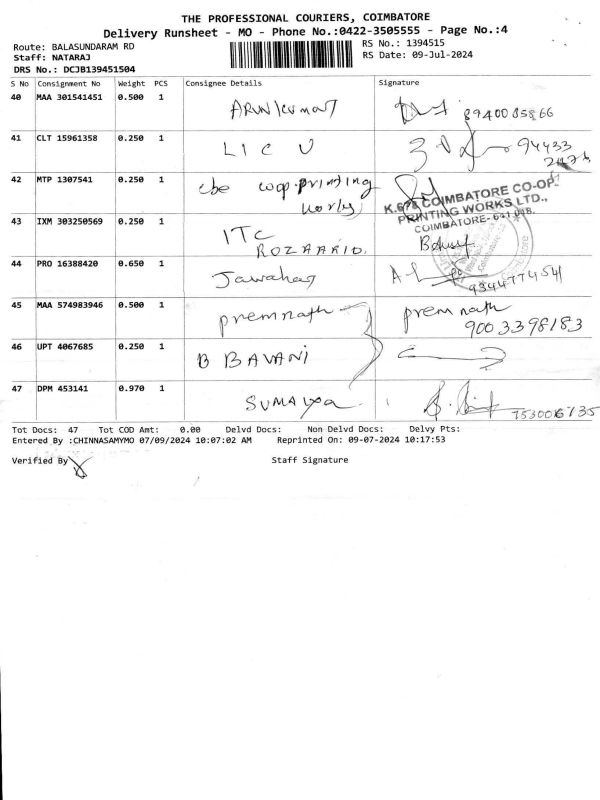 THE PROFESSIONAL COURIERS, COIMBATORE
Delivery Runsheet - MO - Phone No.:0422-3505555 - Page No.:4
Route: BALASUNDARAM RD
RS No.: 1394515
Staff: NATARAJ
RS Date: 09-Jul-2024
DRS No.: DCJB139451504
S No Consignment No Weight PCS Consignee Details Signature
40 MAA 301541451 0.500 1 ARUNKUMAR 8940085866
41 CLT 15961358 0.250 1 LIC U 94433
42 MTP 1307541 0.250 1 cbe coop.printing
works
K.678 COIMBATORE CO-OP.
PRINTING WORKS LTD.,
COIMBATORE- 641 018.
43 IXM 303250569 0.250 1 ITC
ROZAARIO.
44 PRO 16388420 0.650 1 Jawahar 9344774541
45 MAA 574983946 0.500 1 premnath prem nath
9003398183
46 UPT 4067685 0.250 1 B BAVANI
47 DPM 453141 0.970 1 SUMAYA 7530016735
Tot Docs: 47 Tot COD Amt: 0.00 Delvd Docs: Non Delvd Docs: Delvy Pts:
Entered By :CHINNASAMYMO 07/09/2024 10:07:02 AM Reprinted On: 09-07-2024 10:17:53
Verified By Staff Signature